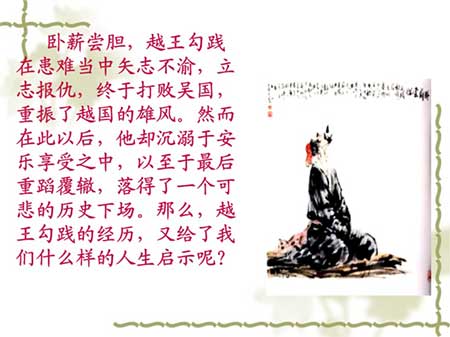 卧薪尝胆，越王勾践
在患难当中矢志不渝，立
志报仇，终于打败吴国，
重振了越国的雄风。然而
在此以后，他却沉溺于安
乐享受之中，以至于最后
重蹈覆辙，落得了一个可
悲的历史下场。那么，越
王勾践的经历，又给了我
们什么样的人生启示呢？